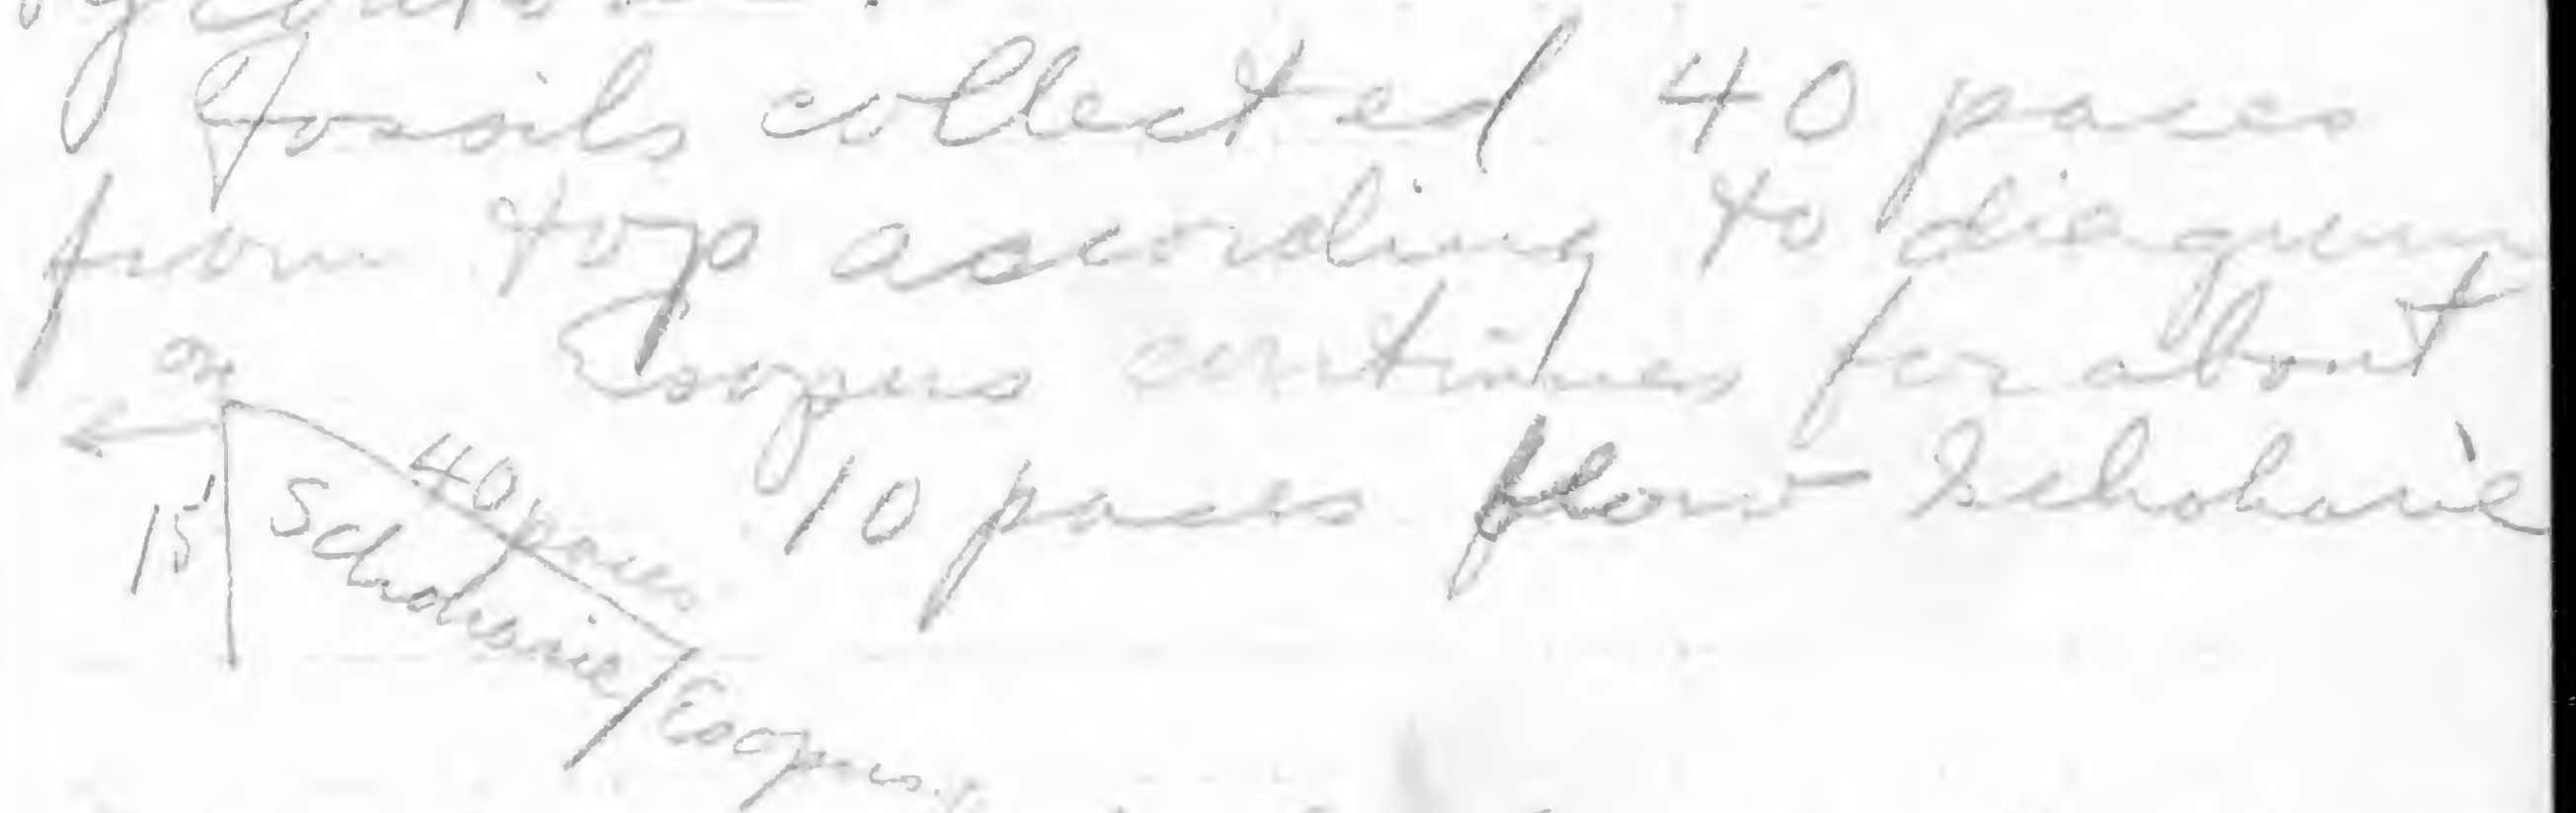 Fossils collected 40 paces
from top according to diagram
Esopus continues for about
10 paces below Schoharie
On
40 paces
15'
Schoharie
Esopus